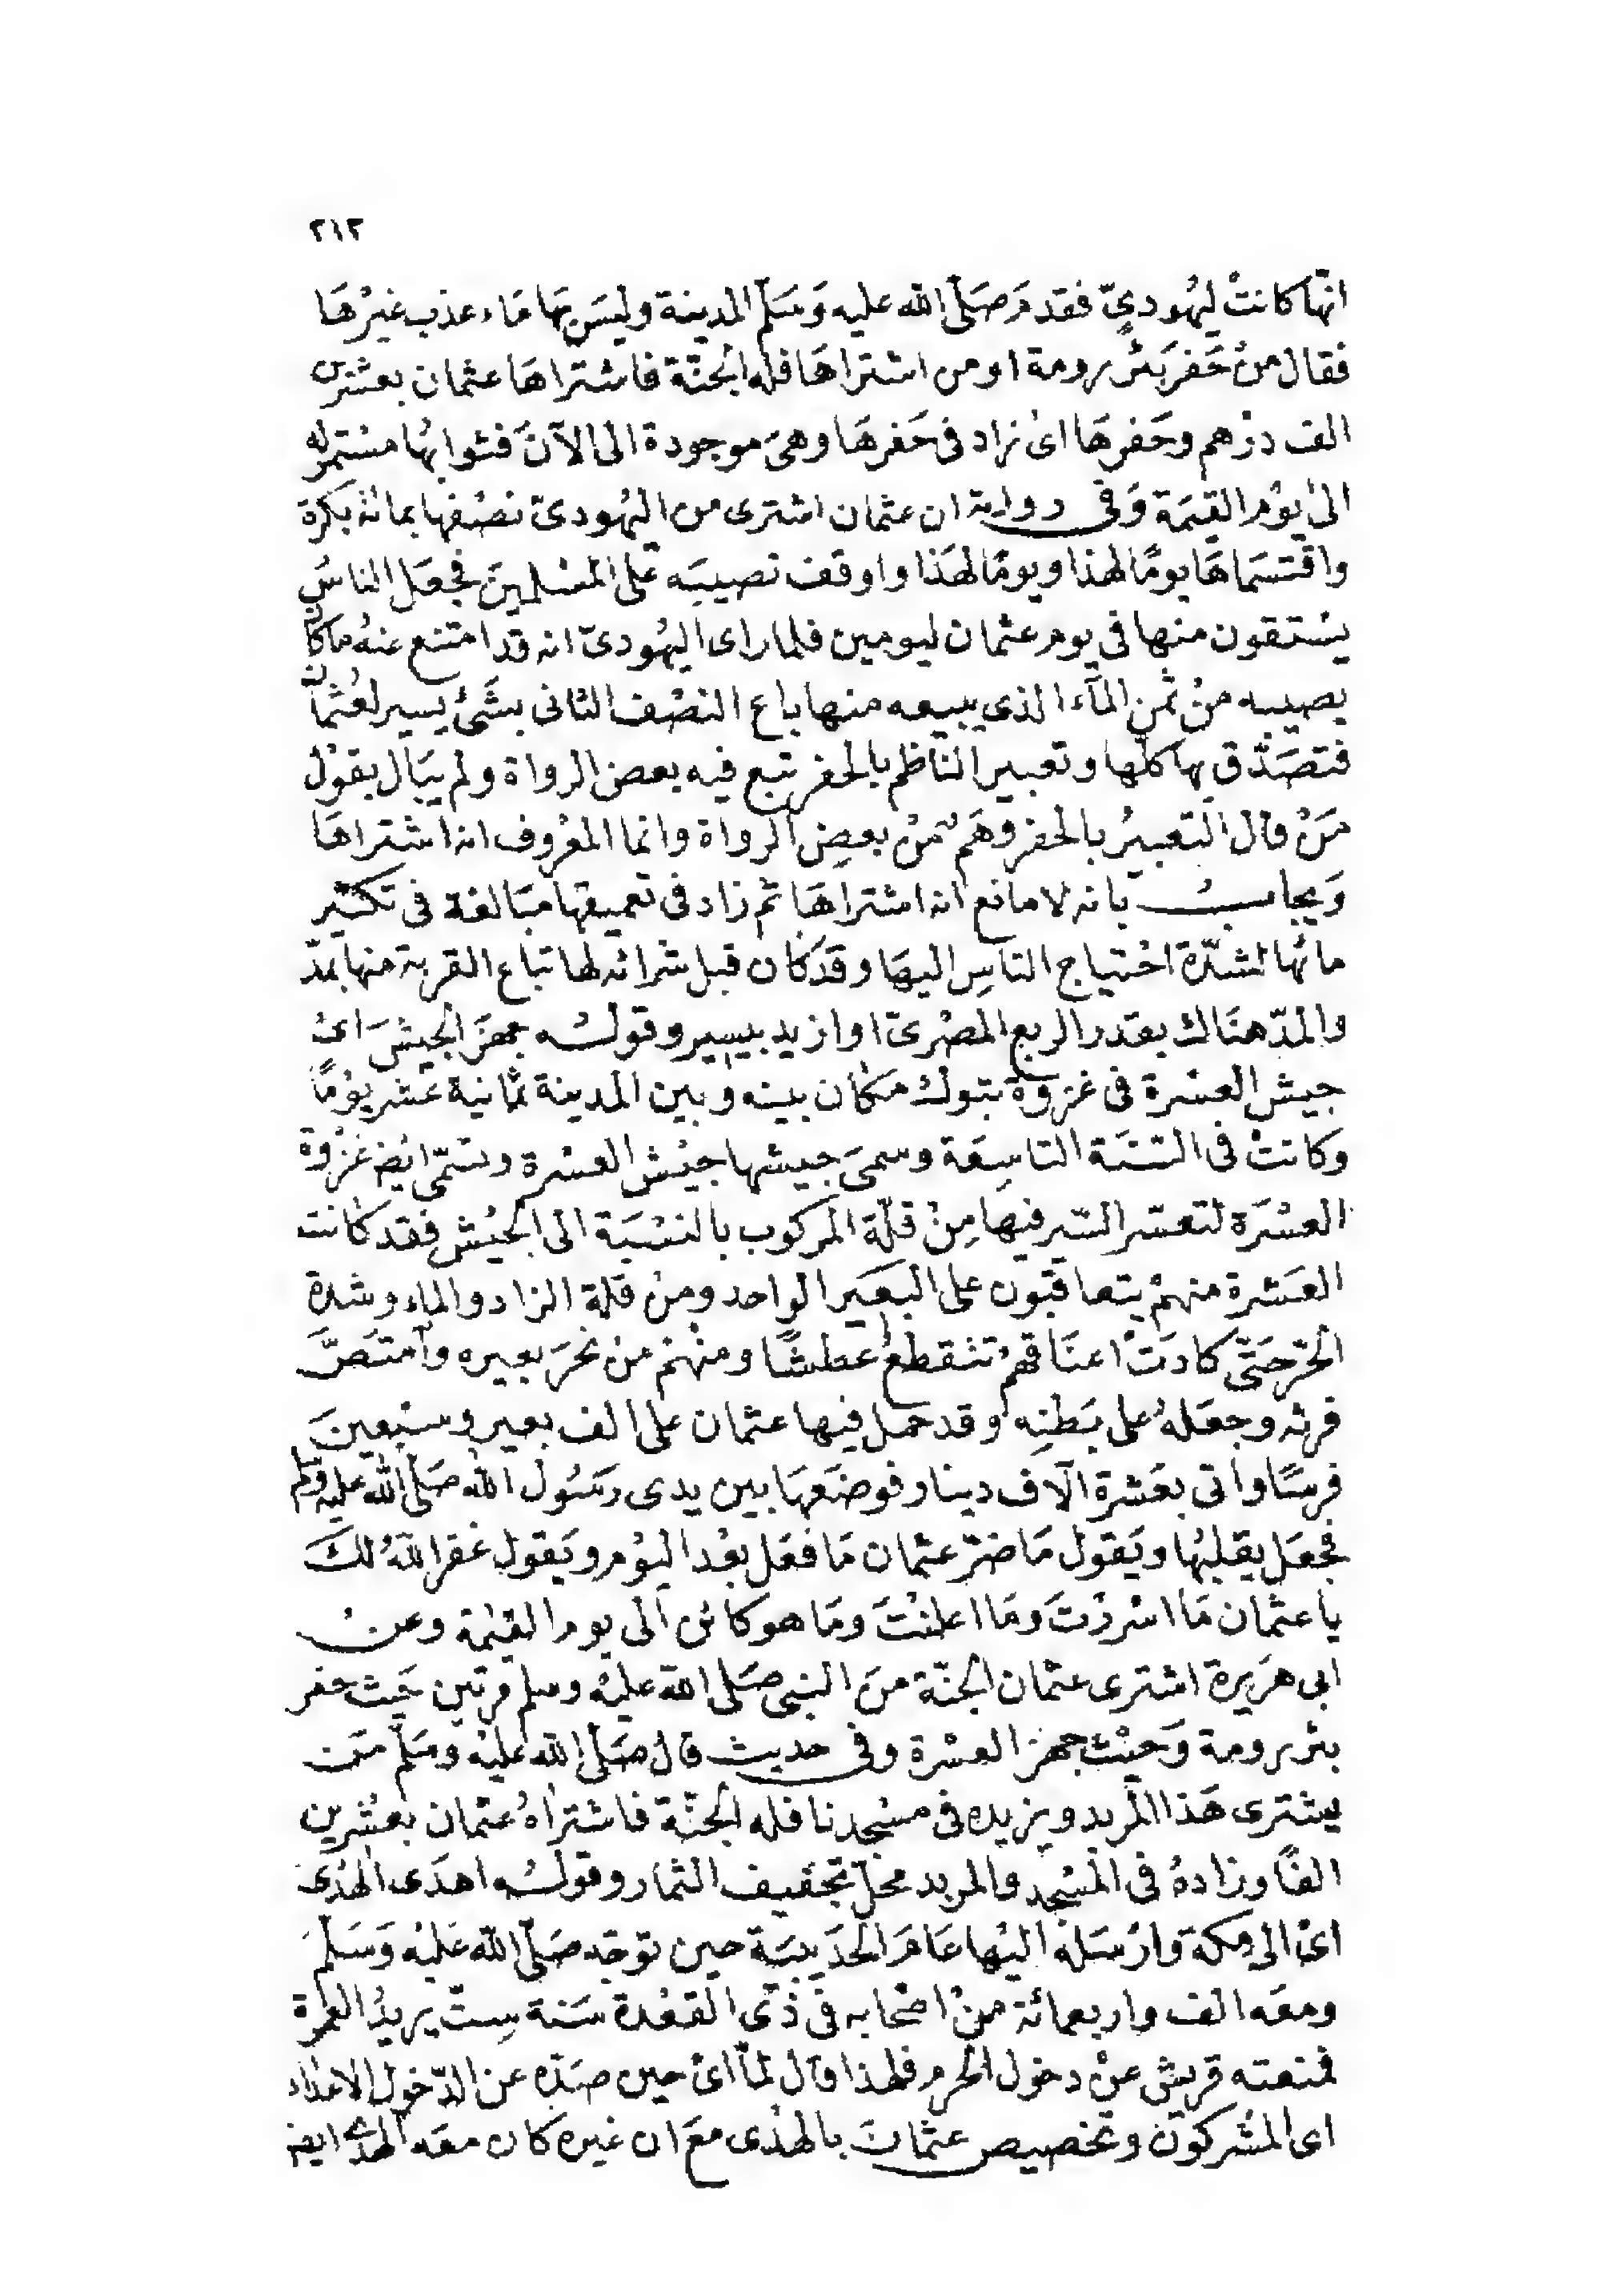 ٢١٢
انها كانت ليهودىّ فقدم صَلّى الله عليه وَسَلّم المدينة وليسَ بهَا مَاء عذب غيرُهَا
فقال منْ حَفر بئر رومة او من اشتراهَا فله الجنّة فاشتراهَا عثمان بعشرين
الف درْهم وحَفرهَا اىْ زاد فى حَفرهَا وهىَ موجودة الى الآنَ فثوابهُا مستمر له
الىْ يوْم القيٰمَة وَفى رواية ان عثمان اشترى من اليهُودىّ نصْفها بمائة بَكرة
واقتسَماهَا يومًا لهذا ويومًا لهَذا واوقف نصيبَه علَى المسْلمينَ فجعَل الناسُ
يسْتقون منها فى يوم عثمان ليومين فلما راى اليهُودىّ انه قد امتنع عنهُ ما كان
يصيبه منْ ثمن المآء الذى يبيعه منها باع النصْف الثانى بشَئ يسير لعُثمان
فتصَدّق بها كلّها وتعبير الناظم بالحفر تبع فيه بعض الرواة ولم يبَال بقوْل
مَنْ قال التعبيرُ بالحفر وهَمٌ منْ بعضِ الرواة وانما المعْروف انه اشتراهَا
وَيجابُ بانه لا مانع انه اشتراهَا ثم زاد فى تعميقها مبَالغة فى تكثير
مائها لشدّة احْتياج الناسِ اليهَا وقدْ كان قبل شرائه لها تباع القربة منها بمدّ
والمدّ هنَاك بقدر الربع المصْرىّ او ازيد بيسير وقولُه جهزَ الجيشَ اىْ
جيش العسْرة فى غزوَة تبوك مكان بينه وبين المدينة ثمانية عشر يوْمًا
وكانتْ فى السّنَة التاسِعَة وسمىَ جيشها جيْش العسْرة وتسَمّى ايضْ غزْوة
العسْرَة لتعسّر السّير فيها مِنْ قلّة المركوب بالنسْبَة الى الجيْش فقد كانت
العَشرة منهمْ يتعاقبُون على البَعير الواحد ومنْ قلة الزاد والماء وشدة
الحرّ حَتّى كادَتْ اعنَاقهمْ تنقطعُ عطشًا ومنْهمْ منْ نحَرَ بعيره وَامتَصَّ
فرثه وجعَلهُ على بَطنِه وقد حمَل فيها عثمان على الف بعير وسبْعينَ
فرسًا واتى بعَشرة آلاف دينار فوضَعهَا بين يدى رَسُول الله صَلّى الله عليه وَسَلم
فجعَل يقلبُها ويَقول مَا ضرّ عثمان مَا فعَل بعْد اليوْم ويَقول غفر اللهُ لكَ
يا عثمان مَا اسْررْتَ ومَا اعلنْتَ ومَا هو كائن الَى يوم القيٰمة وعنْ
ابى هرَيرة اشترى عثمان الجنّة منَ النبىّ صَلى الله عليْه وسلم مرتين حَيث حفر
بئر رومة وَحيْث جهز العسْرة وفى حديث قال صَلّى الله عليْه وسَلّم مَن
يشترى هَذا المربد ويزيده فى مسْجدنا فله الجنّة فاشتراهُ عثمان بعشْرين
الفًا وزادهُ فى المسْجد والمربد محلّ تجفيف الثمار وقولُه اهدَى الهدْى
اىْ الى مكة وارْسَله اليْها عَامَ الحدَيبيَة حين توَجّه صَلّى الله عَليْه وَسَلّم
ومعَه الف واربعمائة منْ اصْحَابه فى ذى القعْدة سَنة سِتّ يريدُ العمرة
فمنعته قريش عنْ دخول الحرم فلهذا قال لمّا اىْ حين صَدّه عن الدّخول الاعداء
اى المشْركون وتخصيص عثمانَ بالهدْى معَ ان غيره كان معَه الهدْى ايضْ